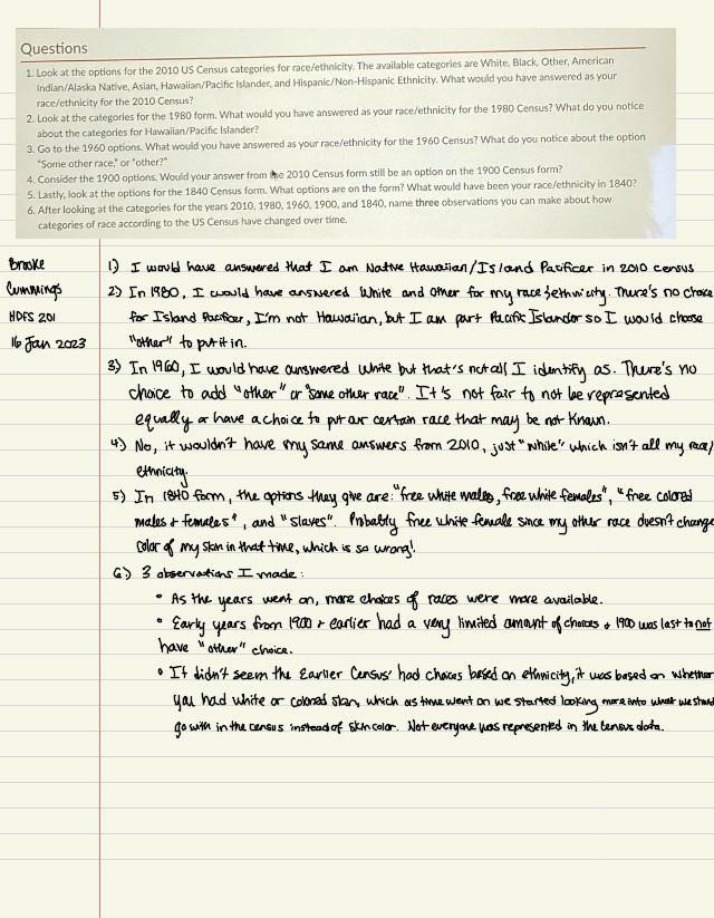 Questions
1. Look at the options for the 2010 US Census categories for race/ethnicity. The available categories are White, Black, Other, American
Indian/Alaska Native, Asian, Hawaiian/Pacific Islander, and Hispanic/Non-Hispanic Ethnicity. What would you have answered as your
race/ethnicity for the 2010 Census?
2. Look at the categories for the 1980 form. What would you have answered as your race/ethnicity for the 1980 Census? What do you notice
about the categories for Hawaiian/Pacific Islander?
3. Go to the 1960 options. What would you have answered as your race/ethnicity for the 1960 Census? What do you notice about the option
"Some other race," or "other?"
4. Consider the 1900 options. Would your answer from the 2010 Census form still be an option on the 1900 Census form?
5. Lastly, look at the options for the 1840 Census form. What options are on the form? What would have been your race/ethnicity in 1840?
6. After looking at the categories for the years 2010, 1980, 1960, 1900, and 1840, name three observations you can make about how
categories of race according to the US Census have changed over time.
Brooke
Cummings
HDFS 201
16 Jan 2023
1) I would have answered that I am Native Hawaiian/Island Pacificer in 2010 census
2) In 1980, I would have answered White and Other for my race & ethnicity. There's no choice
for Island Pacificer, I'm not Hawaiian, but I am part Pacific Islander so I would choose
"other" to put it in.
3) In 1960, I would have answered white but that's not all I identify as. There's no
choice to add "other" or "some other race". It's not fair to not be represented
equally or have a choice to put our certain race that may be not known.
4) No, it wouldn't have my same answers from 2010, just "white" which isn't all my race/
ethnicity.
5) In 1840 form, the options they give are: "free white males, free white females", "free colored
males + females", and "slaves". Probably free white female since my other race doesn't change
color of my skin in that time, which is so wrong!
6) 3 observations I made:
• As the years went on, more choices of races were more available.
• Early years from 1900 + earlier had a very limited amount of choices + 1900 was last to not
have "other" choice.
• It didn't seem the Earlier Census' had choices based on ethnicity, it was based on whether
you had white or colored skin, which as time went on we started looking more into what we should
go with in the census instead of skin color. Not everyone was represented in the Census data.